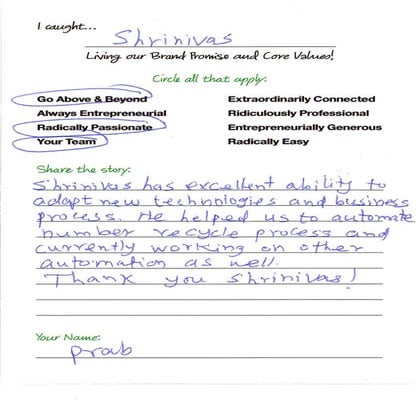 I caught...
Shrinivas
Living our Brand Promise and Core Values!
Circle all that apply:
Go Above & Beyond Extraordinarily Connected
Always Entrepreneurial Ridiculously Professional
Radically Passionate Entrepreneurially Generous
Your Team Radically Easy
Share the story:
Shrinivas has excellent ability to
adapt new technologies and business
process. He helped us to automate
number recycle process and
currently working on other
automation as well.
Thank you Shrinivas!
Your Name: